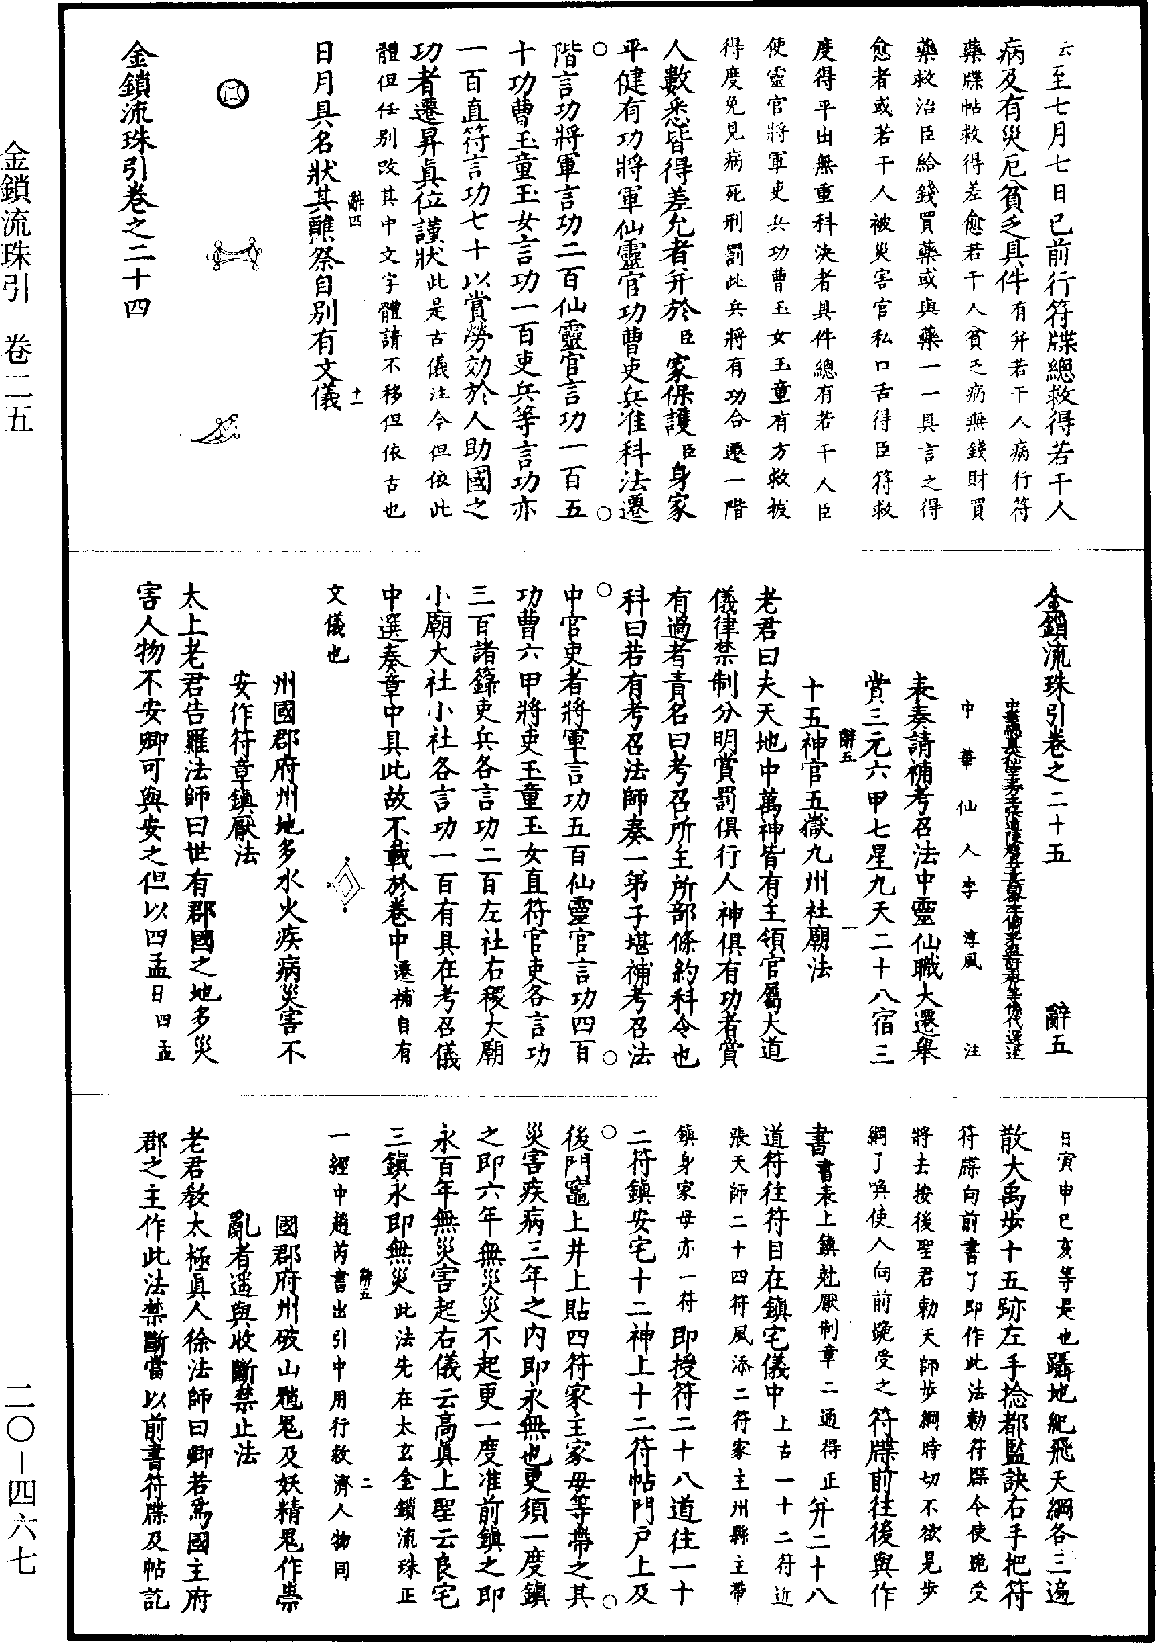 云至七月七日已前行符牒總救得若干人
病及有災厄貧乏具件有并若干人病行符
藥牒帖救得差愈若干人貧乏病無錢財買
藥救治臣給錢買藥或與藥一一具言之得
愈者或若干人被災害官私口舌得臣符救
度得平出無重科決者具件總有若干人臣
使靈官將軍吏兵功曹玉女玉童有方救拔
得度免見病死刑罰此兵將有功合遷一階
人數悉皆得差允者并於臣家保護臣身家
平健有功將軍仙靈官功曹吏兵准科法遷
階言功將軍言功二百仙靈官言功一百五
十功曹玉童玉女言功一百吏兵等言功亦
一百直符言功七十以賞勞効於人助國之
功者遷昇眞位謹狀此是古儀注今但依此
體但任別改其中文字體請不移但依古也
辭四 十一
日月具名狀其醮祭自別有文儀
金鎖流珠引卷之二十四
金鎖流珠引卷之二十五 辭五
中華仙人李淳風注
表奏請補考召法中靈仙職大選舉
賞三元六甲七星九天二十八宿三
辭五 一
十五神官五嶽九州社廟法
老君曰夫天地中萬神皆有主領官屬大道
儀律禁制分明賞罰俱行人神俱有功者賞
有過者責名曰考召所主所部條約科令也
科曰若有考召法師奏一弟子堪補考召法
中官吏者將軍言功五百仙靈官言功四百
功曹六甲將吏玉童玉女直符官吏各言功
三百諸籙吏兵各言功二百左社右稷大廟
小廟大社小社各言功一百有具在考召儀
中選奏章中具此故不載於卷中遷補自有
文儀也
州國郡府州地多水火疾病災害不
安作符章鎮厭法
太上老君告羅法師曰世有郡國之地多災
害人物不安卿可與安之但以四孟日四孟
日寅申巳亥等是也躡地紀飛天綱各三遍
散大禹步十五跡左手捻都監訣右手把符
符牒向前書了即作此法勅符牒令使跪受
將去按後聖君勅天師步綱時切不欲見步
綱了喚使人向前㨻受之符牒前往後與作
書書表上鎮尅厭制章二通得正并二十八
道符往符目在鎮宅儀中上古一十二符近
張天師二十四符風添二符家主州縣主帶
鎮身家母亦一符即授符二十八道往一十
二符鎮安宅十二神上十二符帖門戶上及
後門竈上井上貼四符家主家母等帶之其
災害疾病三年之內即永無也更須一度鎮
之即六年無災災不起更一度准前鎮之即
永百年無災害起右儀云高眞上聖云良宅
三鎮永即無災此法先在太玄金鎖流珠正
辭五 二
一經中趙芮書出引中用行救濟人物同
國郡府州破山魈鬼及妖精鬼作祟
亂者遥與收斷禁止法
老君敎太極眞人徐法師曰卿若爲國主府
郡之主作此法禁斷當以前書符牒及帖訖
金鎖流珠引 卷二五
二〇－四六七